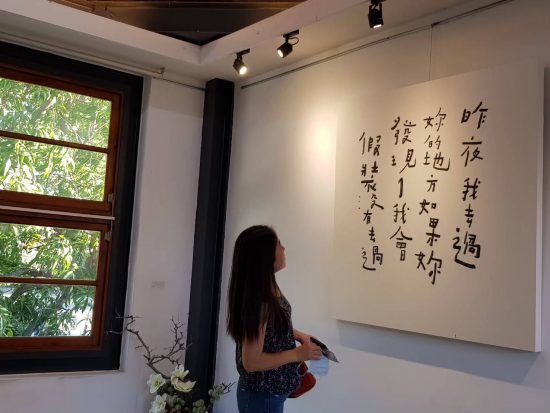 昨夜我去過
妳的地方如果妳
發現了我會
假裝沒有去過